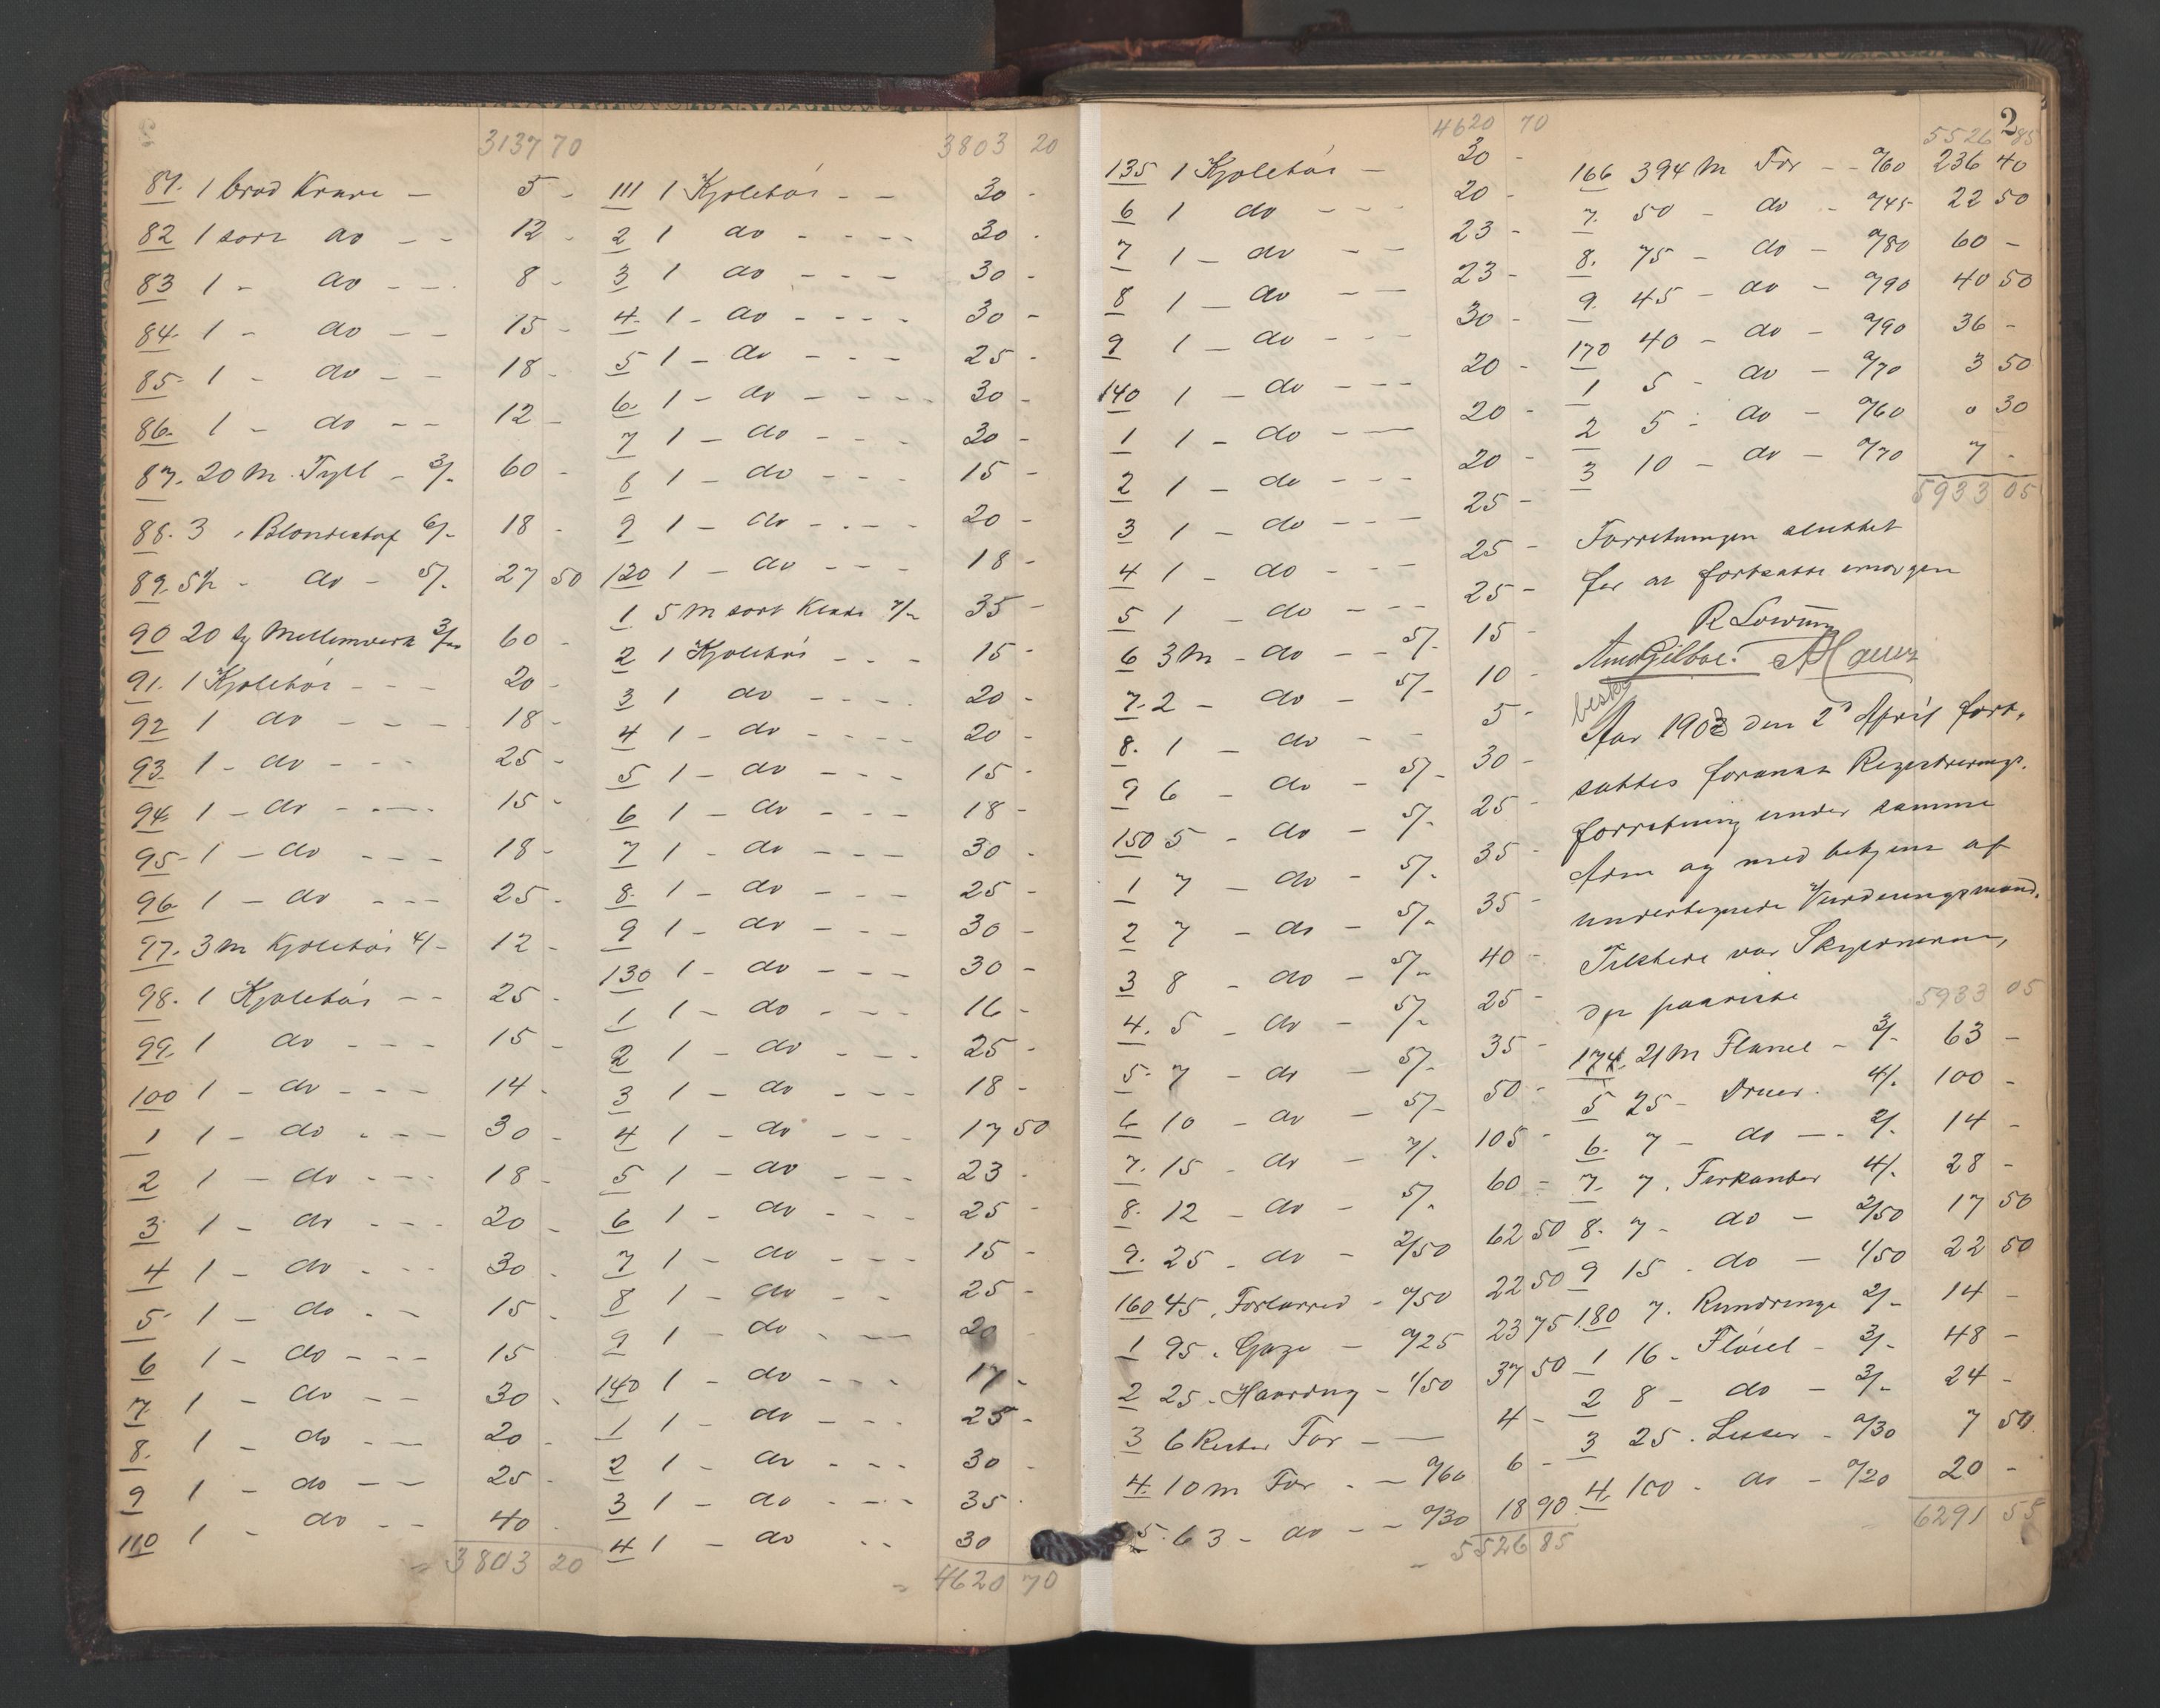 3137 70
81. 1 brod Krave - 5 -
82 1 sort do - - 12 -
83 1 - do - - - 8 -
84. 1 - do - - 15 -
85 1 - do - - 18 -
86. 1 - do - - 12 -
87. 20 M. Tyll - 3/- 60 -
88. 3 " Blondestof 6/- 18 -
89. 5½ - do - 5/- 27 50
90 20 Mellemverk 3/- 60 -
91. 1 Kjoletøi - - - 20 -
92 1 do - - - - 18 -
93 1 - do - - - 25 -
94 1 - do - - - 15 -
95 1 - do - - - 18 -
96 1 - do - - - 25 -
97. 3 m Kjoletøi 4/- 12 -
98. 1 Kjoletøi - - 25 -
99. 1 do - - - 15 -
100 1 - do - - - 14 -
1 1 - do - - - 30 -
2 1 - do - - - 18 -
3 1 - do - - - 20 -
4 1 - do - - - 30 -
5 1 - do - - 15 -
6 1 - do - - - 15
7 1 - do - - 30 -
8. 1 - do - - 20 -
9 1 - do - - 25 -
110 1 - do - - 40 -
= 3803 20
3803 20
111 1 Kjoletøi - - 30 -
2 1 do - - - - 30 -
3 1 do - - - 30 -
4. 1 - do - - - - 30 -
5 1 - do - - - 25 -
6. 1 - do - - - - 30 -
7 1 - do - - - 30 -
8 1 - do - - - 15 -
9 1 - do - - - 20 -
120 1 - do - - - 18 -
1 5 m sort Klæde 7/- 35 -
2 1 Kjoletøi - - - 15 -
3 1 do - - - - 20 -
4 1 - do - - - - 20 -
5 1 - do - - - 15 -
6 1 - do - - - 18 -
7 1 - do - - - 30 -
8. 1 - do - - - 25 -
9 1 - do - - - 30 -
130 1 - do - - - 30 -
1 1 - do - - - 16 -
2 1 - do - - - 25 -
3 1 - do - - - 18 -
4 1 - do - - - 17 50
5 1 - do - - - 23 -
6 1 - do - - - 25 -
7 1 - do - - - 15 -
8 1 - do - - 25 -
9 1 - do - - 20 -
140 1 - do - - - 17 -
1 1 - do - - - 25 -
2 1 - do - - - 30 -
3 1 - do - - - 35 -
4 1 - do - - 30
= 4620 70
2
4620 70
135 1 Kjoletøi - 30 -
6 1 do - - - 20 -
7 1 - do - - 23 -
8 1 - do - - 23 -
9 1 - do - - - 30 -
140 1 - do - - - 20 -
1 1 - do - - 20 -
2 1 - do - - - 20 -
3 1 - do - - - 25 -
4 1 - do - - - 25 -
5 1 - do - - - 25 -
6 3 m - do - - 5/- 15 -
7. 2 - do - 5/- 10 -
8. 1 - do - - 5 -
9 6 - do - 5/- 30 -
150 5 - do - 5/- 25 -
1 7 - do - 5/- 35 -
2 7 - do - 5/- 35 -
3 8 - do - 5/- 40 -
4. 5 - do - 5/- 25 -
5 7 - do - 5/- 35 -
6 10 - do - 5/- 50 -
7. 15 - do - 7/- 105 -
8. 12 - do - 5/- 60 -
9. 25 - do - 2/50 62 50
160 45 " Forlærred - "/50 22 50
1 95 " Gaze - "/25 23 75
2 25 " Haardug - 1/50 37 50
3 6 Rester For - - 4 -
4. 10 m For . - "/60 6 -
5. 63 - do - - "/30 18 90
= 5526 85
5526 85
166 394 M For - - "/60 236 40
7. 50 - do - "/45 22 50
8. 75 - do - "/80 60 -
9. 45 - do - "/90 40 50
170 40 - do - "/90 36 -
1 5 - do - "/70 3 50
2 5 - do - "/60 0 30
3 10 - do - "/70 7 -
5933 05
Forretningen sluttet
for at fortsætte imorgen
R Lowum
Amd Gilboe.
besk
Aar 1903 den 2d April fort-
sattes foranst Registrerings-
forretning under samme
Adm og med betjent af
undertegnede Vurderingsmænd.
Tilstede var Skyldneren,
der paaviste
5933 05
174. 21 M Flanel - 3/- 63 -
5 25 - Druer. 4/- 100 -
6. 7 - do - - 2/- 14 -
7. 7. Firkanter 4/- 28 -
8. 7 - do - 2/50 17 50
9 15 - do - 1/50 22 50
180 7. Rundringe 2/- 14 -
1 16 - Fløiel - 3/- 48 -
2 8 - do - 3/- 24 -
3 25 . Lisser - "/30 7 50
4. 100 - do - "/20 20 -
6291 55